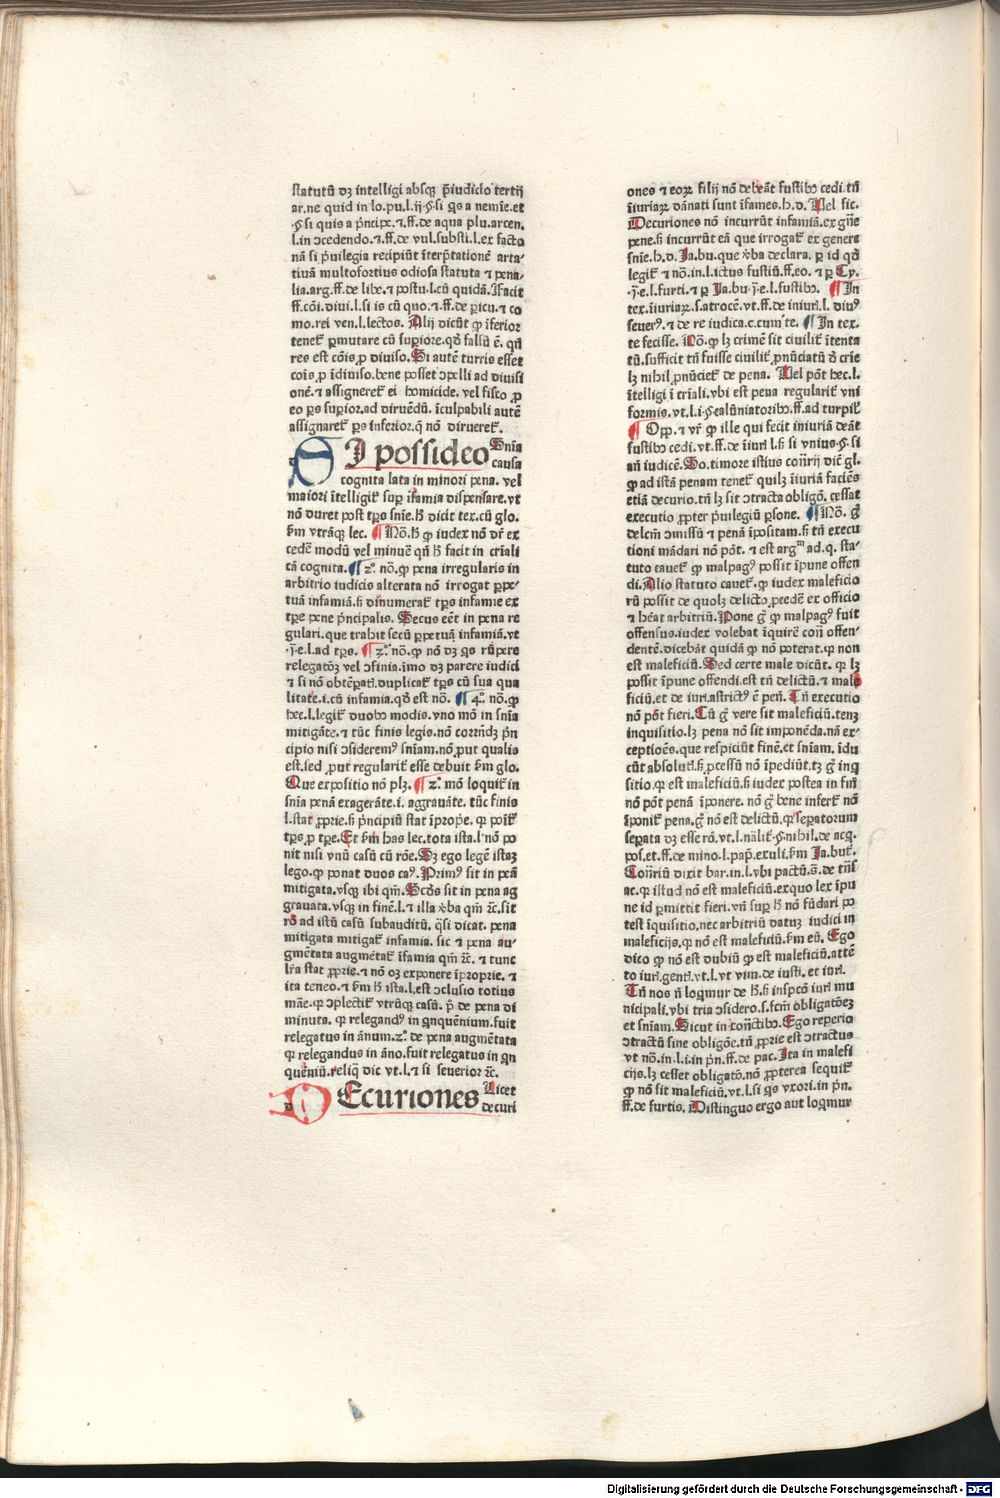 statutū dꝫ intelligi absqꝫ p̄iudicio tertij
ar. ne quid in lo. pu. l. ij. § si qs a nemīe. et
§ si quis a p̄ncipe. ⁊. ff. de aqua plu. arcen.
l. in ↄcedendo. ⁊. ff. de vul. substi. l. ex facto
nā si p̄uilegia recipiūt īterp̄tationē arta-
tiuā multofortius odiosa statuta ⁊ pena-
lia. arg. ff. de libe. ⁊ postu. l. cū quidā. Facit
ff. cōi. diui. l. si is cū quo. ⁊. ff. de picu. ⁊ co
mo. rei ven. l. lectos. Alij dicūt ꝙ īferior
tenet᷑ ꝑmutare cū suꝑiore. qđ falsū ē. qn̄
res est cōis ꝓ diuiso. Si autē turris esset
cois ꝓ īdiuiso. bene posset ↄpelli ad diuisi
onē. ⁊ assigneret᷑ ei homicide. vel fisco ꝓ
eo ꝑs suꝑior. ad diruēdū. īculpabili autē
assignaret᷑ ꝑs inferior. q̄ nō dirueret᷑.
SI possideo Snīa
causa
cognita lata in minori pena. vel
maiori ītelligit᷑ suꝑ īfamia dispensare. vt
nō duret post tꝑs snīe. H̄ dicit tex. cū glo.
ẜm vtrāqꝫ lec. ¶ Nō. h̄ ꝙ iudex nō dꝫ ex
cedē modū vel minuē qn̄ h̄ facit in crīali
cā cognita. ¶ 2ͦ. nō. ꝙ pena irregularis in
arbitrio iudicis alterata nō irrogat ꝑpe-
tuā infamiā. ẜ dinumerat᷑ tꝑs infamie ex
tꝑe pene p̄ncipalis. Secus eēt in pena re
gulari. que trahit secū ꝑpetuā infamiā. vt
j. e. l. ad tꝑs. ¶ 2ͦ. nō. ꝙ nō dꝫ qs rūpere
relegatōꝫ vel ↄfinia. īmo dꝫ parere iudici
⁊ si nō obtēꝑat. duplicat᷑ tꝑs cū sua qua
litate. i. cū infamia. qđ est nō. ¶ 4ͦ. nō. ꝙ
hec. l. legit᷑ duobꝰ modis. vno mō in snīa
mitigāte. ⁊ tūc finis legis. nō corrn̄dꝫ p̄n
cipio nisi ↄsideremꝰ snīam. nō ꝓut qualis
est. sed ꝓut regularit᷑ esse debuit ẜm glo.
Que expositio nō plꝫ. ¶ 2ͦ. mō loquit᷑ in
snīa penā exagerāte. i. aggrauāte. tūc finis
l. stat ꝓprie. ẜ p̄ncipiū stat īpꝓpe. ꝙ poīt᷑
tꝑs ꝓ tꝑe. Et ẜm has lec. tota ista. l. nō po
nit nisi vnū casū cū rōe. Sꝫ ego legē istaꝫ
lego. ꝙ ponat duos caꝰ. Primꝰ sit in peā
mitigata. vsqꝫ ibi qm̄. Scđs sit in pena ag
grauata. vsqꝫ in finē. l. ⁊ illa ꝟba qm̄ ⁊c. sit
rō ad istū casū subauditū. q̄si dicat. pena
mitigata mitigat᷑ infamia. sic ⁊ pena au-
gmētata augmētat᷑ īfamia qm̄ ⁊c. ⁊ tunc
lr̄a stat ꝓprie. ⁊ nō oꝫ exponere īproprie. ⁊
ita teneo. ⁊ ẜm h̄ ista. l. est ↄclusio totius
māe. ꝙ ↄplectit᷑ vtrūqꝫ casū. p̄ de pena di
minuta. ꝙ relegandꝰ in qnquēnium. fuit
relegatus in ānum. 2ͦ. de pena augmētata
ꝙ relegandus in āno. fuit relegatus in qn
quēniū. reliq̄ dic vt. l. ⁊ si seuerior ⁊c.
DEcuriones Licet
decuri
ones ⁊ eoꝝ filij nō debeāt fustibꝰ cedi. tn̄
īiuriaꝝ dānati sunt īfames. h. d. Vel sic.
Decuriones nō incurrūt infamiā. ex gn̄e
pene. ẜ incurrūt eā que irrogat᷑ ex genere
snīe. h. d. Ja. bu. que ꝟba declara. ꝑ id qđ
legit᷑ ⁊ nō. in. l. ictus fustiū. ff. eo. ⁊ ꝑ Cy.
j. e. l. furti. ⁊ ꝑ Ja. bu. j. e. l. fustibꝰ. ¶ In
tex. īiuriaꝝ. s. atrocē. vt. ff. de iniuri. l. diuꝰ
seuerꝰ. ⁊ de re iudica. c. cum te. ¶ In tex.
te fecisse. Nō. ꝙ lꝫ crimē sit ciuilit᷑ ītenta
tū. sufficit tn̄ fuisse ciuilit᷑ ꝓnūciatū ꝺ crīe
lꝫ nihil ꝓnūciet᷑ de pena. Vel pōt hec. l.
ītelligi ī crīali. vbi est pena regularit᷑ vni
formis. vt. l. i. § calūniatoribꝰ. ff. ad turpil᷑
¶ Opp. ⁊ vr̄ ꝙ ille qui fecit iniuriā deāt
fustibꝰ cedi. vt. ff. de īiuri. l. ẜ si vnius. § si
an̄ iudicē. So. timore istius con̄rij dic̄ gl.
ꝙ ad istā penam tenet᷑ quilꝫ īiuriā faciēs
etiā decurio. tn̄ lꝫ sit ↄtracta obligō. cessat
executio ꝓpter p̄uilegiū ꝑsone. ¶ Nō. gͦ
delcm̄ ↄmissū ⁊ penā īpositam. ẜ tn̄ execu
tioni mādari nō pōt. ⁊ est argᵐ ad. q. sta-
tuto cauet᷑ ꝙ malpagꝰ possit īpune offen
di. Alio statuto cauet᷑. ꝙ iudex maleficio
rū possit de quolꝫ delicto ꝓcedē ex officio
⁊ hēat arbitriū. Pone gͦ ꝙ malpagꝰ fuit
offensus. iudex volebat īquirē con̄ offen-
dentē. dicebāt quidā ꝙ nō poterat. ꝙ non
est maleficiū. Sed certe male dicūt. ꝙ lꝫ
possit īpune offendi. est tn̄ delictū. ⁊ male
ficiū. et de iuri. astrictꝰ ē pen̄. Tn̄ executio
nō pōt fieri. Cū gͦ vere sit maleficiū. tenꝫ
inquisitio. lꝫ pena nō sit imponēda. nā ex-
ceptioēs. que respiciūt finē. et snīam. īdu
cūt absolutī. ẜ ꝓcessū nō īpediūt. tꝫ gͦ inq̄
sitio. ꝙ est maleficiū. ẜ iudex postea in fin̄
nō pōt penā īponere. nō gͦ bene infert᷑ nō
īponit᷑ pena. gͦ nō est delictū. ꝙ seꝑatorum
seꝑata dꝫ esse rō. vt. l. nālit᷑. § nihil. de acq.
pos. et. ff. de mino. l. pap. exuli. ẜm Ja. but᷑.
Con̄riū dixit bar. in. l. vbi pactū. C. de trās
ac. ꝙ istud nō est maleficiū. exquo lex īpu
ne id ꝑmittit fieri. vn̄ suꝑ h̄ nō fūdari po
test īquisitio. nec arbitriū datuꝫ iudici in
maleficijs. ꝙ nō est maleficiū. ẜm eū. Ego
dico ꝙ nō est dubiū ꝙ est maleficiū. attē
to iuri. genti. vt. l. vt vim. de iusti. et iuri.
Tn̄ nos n̄ loqmur de h̄. ẜ inspcō iuri mu
nicipali. vbi tria ↄsidero. s. fcm̄ obligatōeꝫ
et snīam. Sicut in ↄn̄ctibꝰ. Ego reperio
ↄtractū sine obligōe. tn̄ ꝓprie est ↄtractus
vt nō. in. l. i. in p̄n. ff. de pac. Ita in malefi
cijs. lꝫ cesset obligatō. nō ꝓpterea sequit᷑
ꝙ nō sit maleficiū. vt. l. si qs vxori. in p̄n.
ff. de furtis. Distinguo ergo aut loqmur
Digitalisierung gefördert durch die Deutsche Forschungsgemeinschaft - DFG